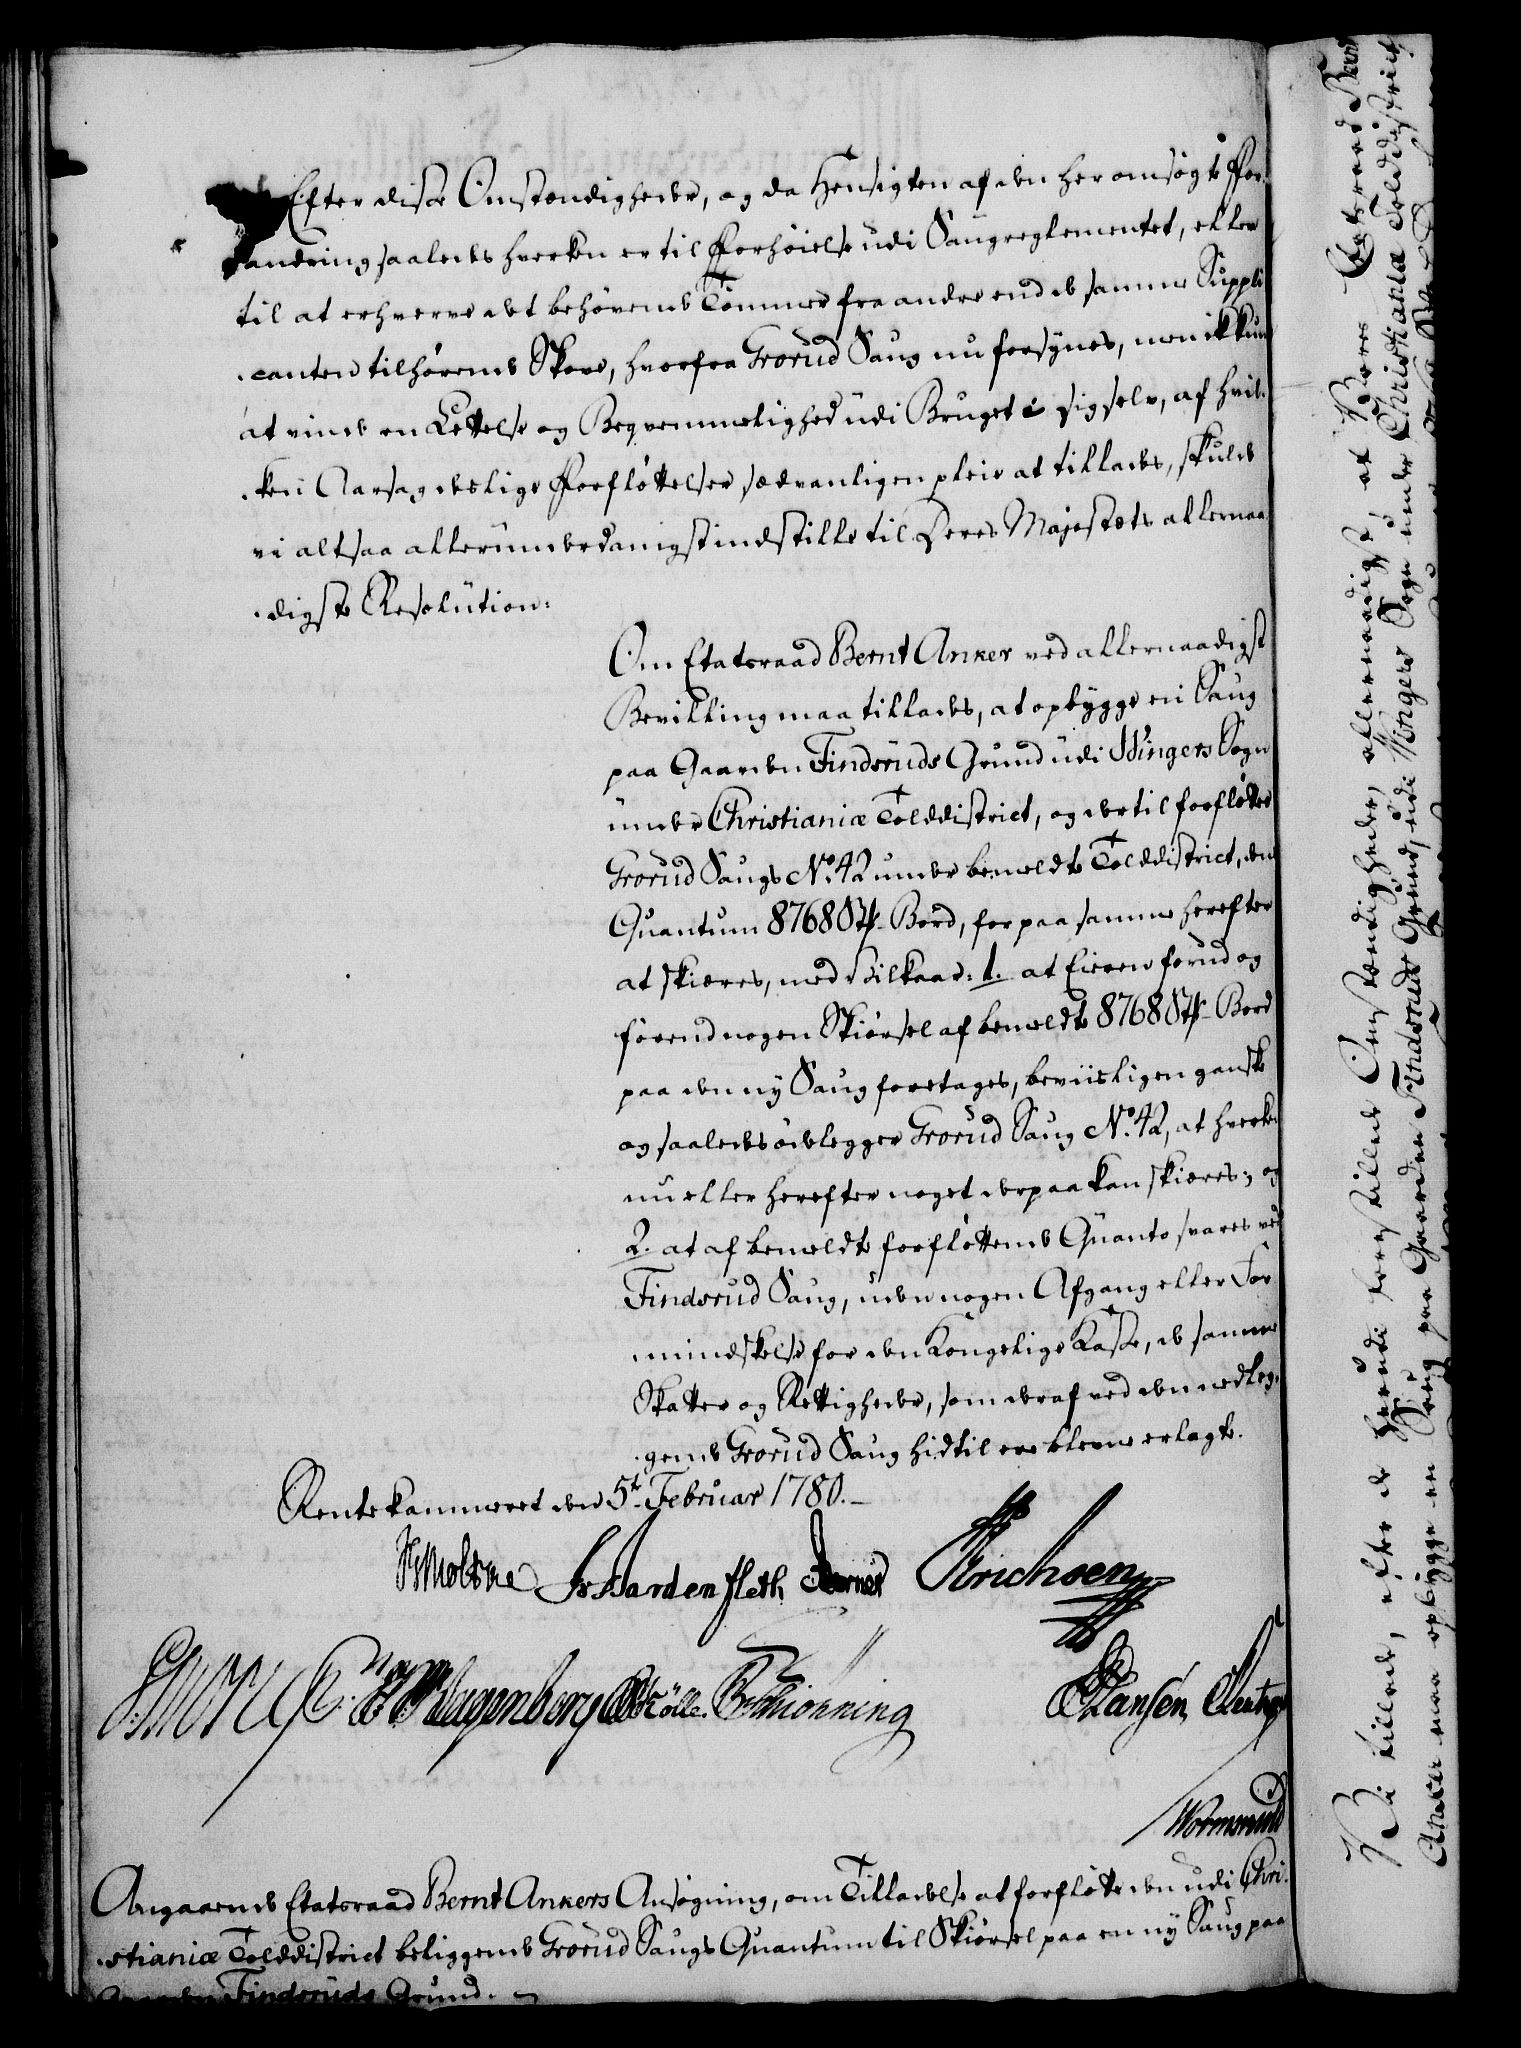 Efter disse Omstændigheder, og da Hensigten af den her omsøgte For-
andring saaledes hverken er til Forhøielse udi Saugreglementet, eller
til at erhverve det behøvende Tømmer fra andre end de samme Suppli-
canten tilhørende Skove, hvorfra Grorud Saug nu forsynes, men ikkun
at vinde en Lettelse og Beqvemmelighed udi Bruget i sig selv, af hvil-
ken Aarsag deslige Forfløttelser sædvanligen pleie at tillades, skulde
vi altsaa allerunderdanigst indstille til Deres Majestæts allernaa-
digste Resolution:
Om Etatsraad Bernt Anker ved allernaadigst
Bevilling maa tillades, at opbygge en Saug
paa Gaarden Findsruds Grund udi Wingers Sogn
under Christianiæ Tolddistrict, og dertil forfløtte
Grorud Saugs No. 42 under bemeldte Tolddistrict, den
Quantum 8768 Stk. Bord, for paa samme herefter
at skiæres, med Vilkaar: 1. at Eieren forud og
førend nogen Skiørsel af bemeldte 8768 Stk. Bord
paa den ny Saug foretages, beviisligen ganske
og saaledes ødelegger Grorud Saug No. 42, at hverken
nu eller herefter noget derpaa kan skiæres; og
2. at af bemeldte forfløttende Quanto svares ved
Findsrud Saug, uden nogen Afgang eller For-
mindskelse for den Kongelige Kasse, de samme
Skatter og Rettigheder, som deraf ved den nedleg-
gende Grorud Saug hidtil ere blevne erlagte.
Rentekammeret den 5t. Februar 1780.
Ardenfleth Erichsen
Schionning Hansen
Wormsrund
Angaaende Etatsraad Bernt Ankers Ansøgning, om Tilladelse at forfløtte den udi Chri-
stianiæ Tolddistrict beliggende Grorud Saugs Quantum til Skiørsel paa en ny Saug paa
Gaarden Findsruds Grund.
Vi tillade, efter de herudi forestillede Omstændigheder, allernaadigst, at Vores Etatsraad Bernt
Anker maa opbygge en Saug paa Gaarden Findsruds Grund, udi Wingers Sogn under Christianiæ Tolddistrict